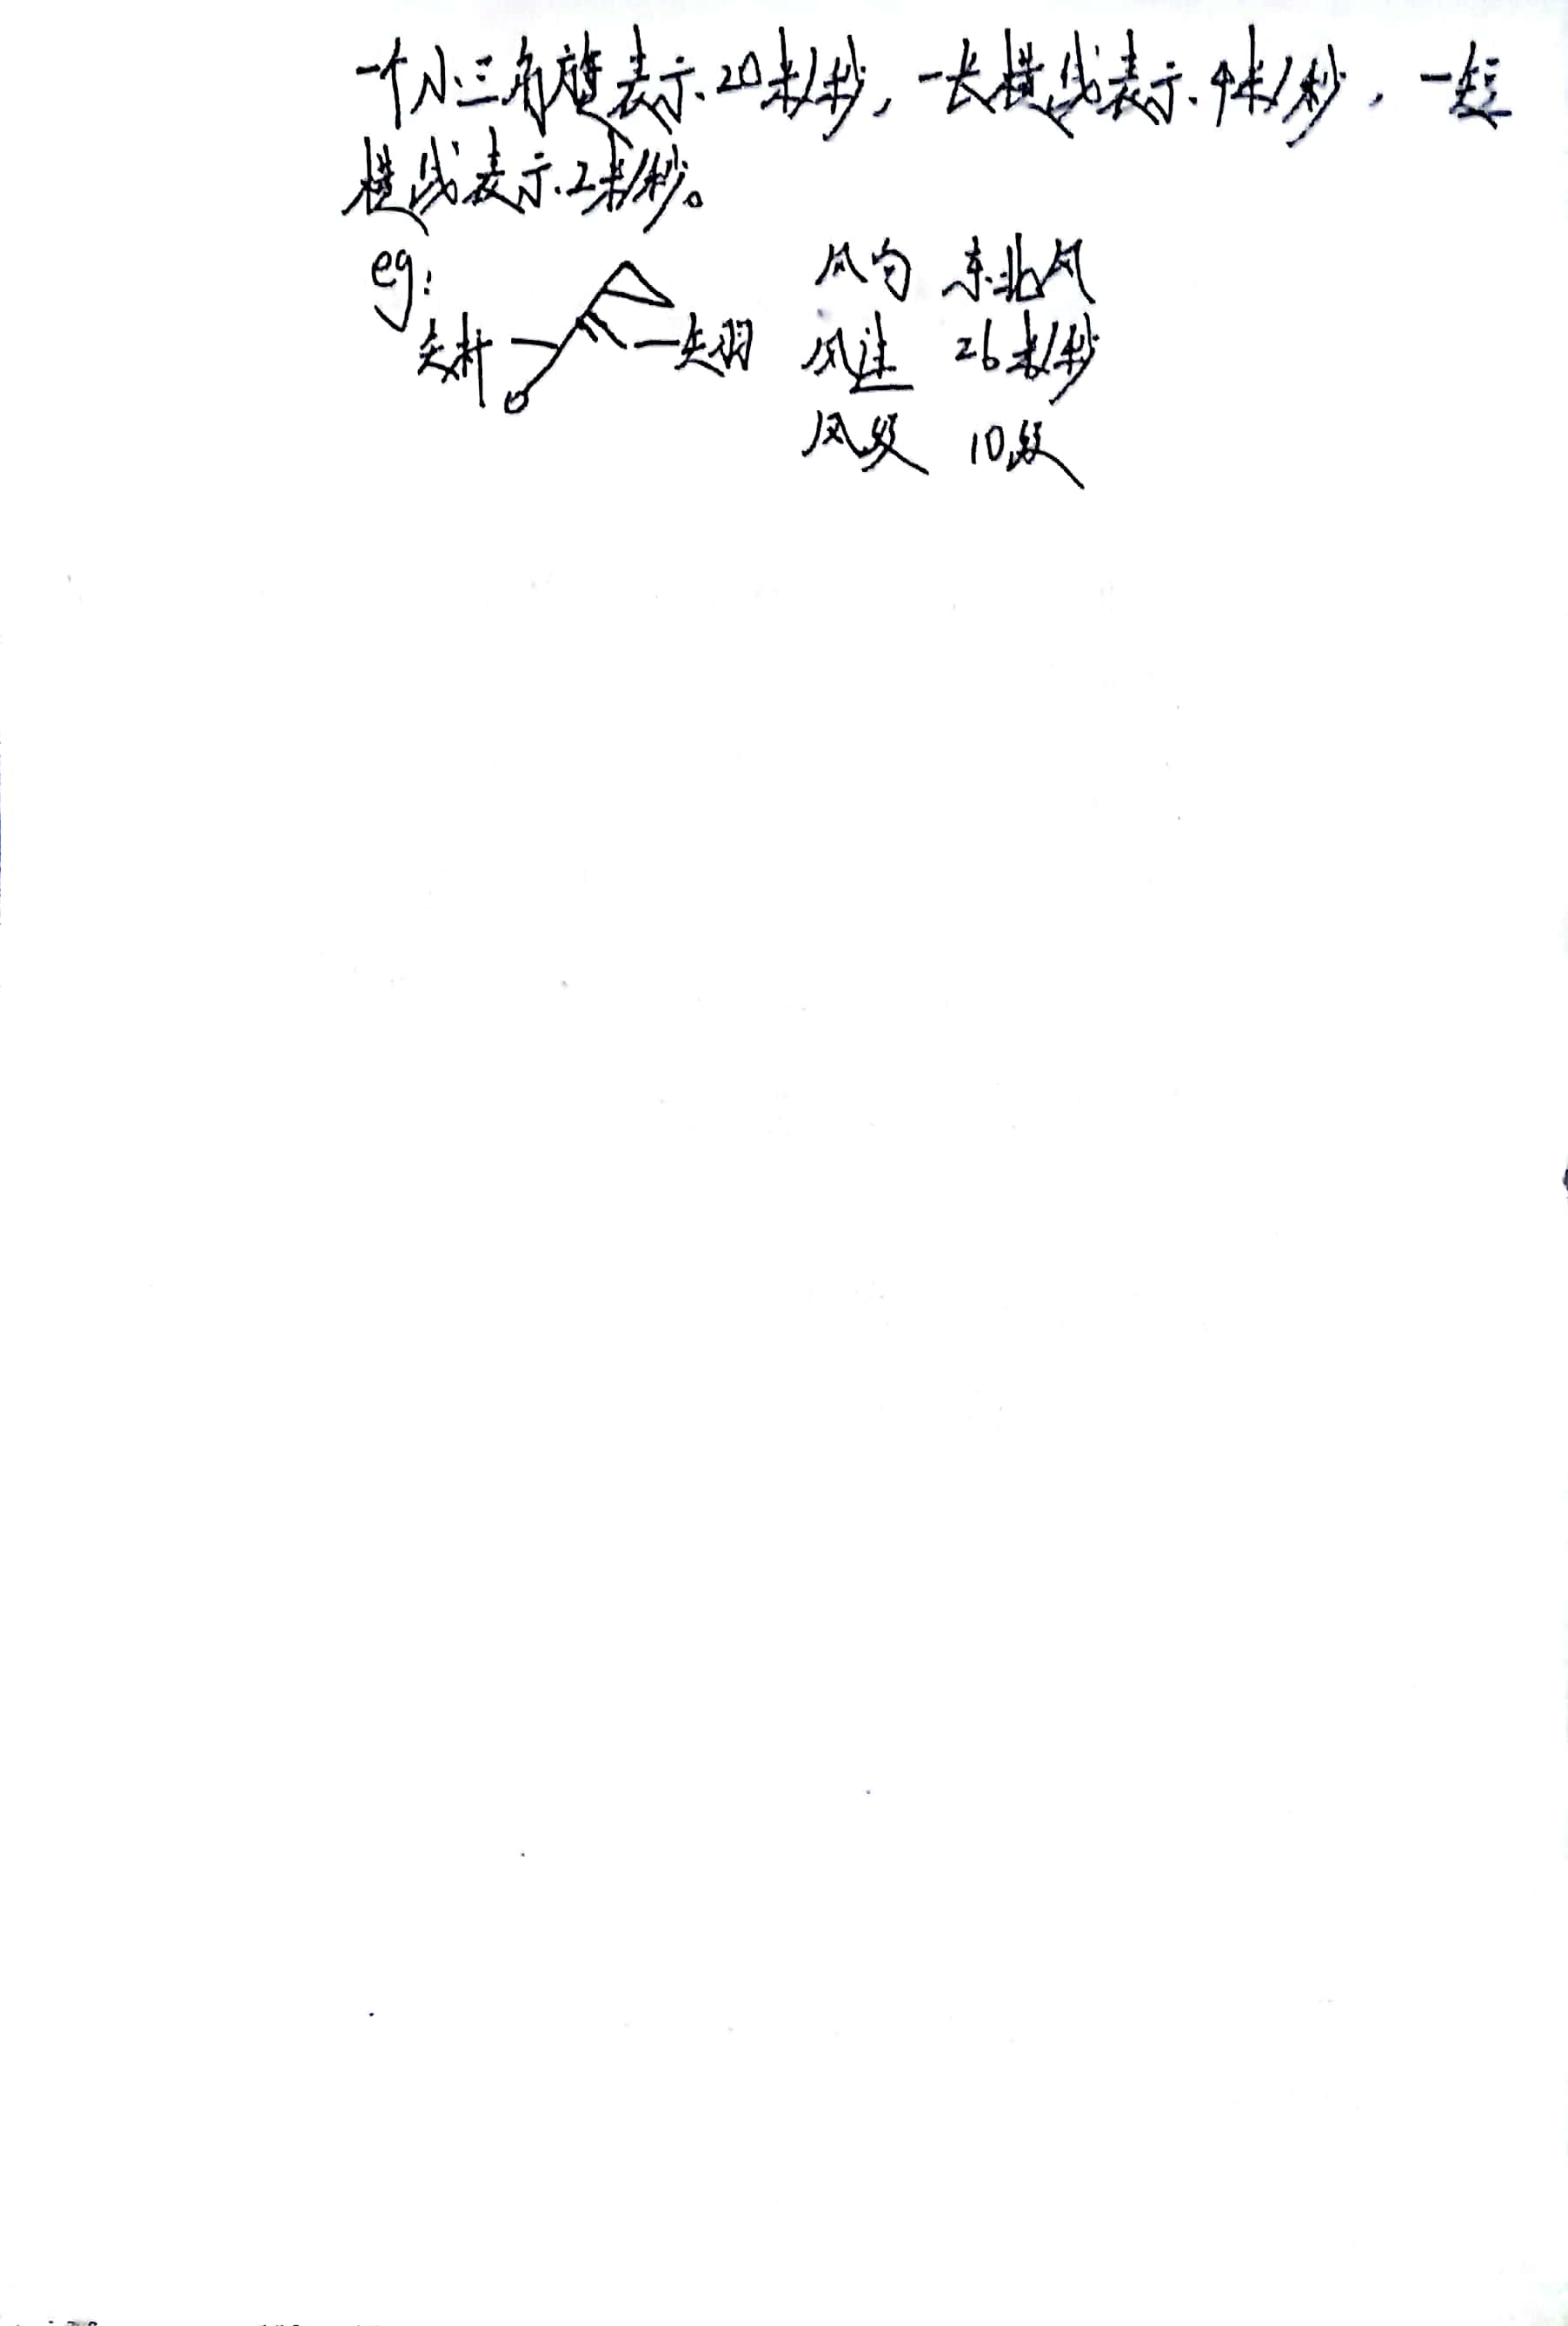 一个小三角旗表示20米/秒,一长横线表示4米/秒,一短
横线表示2米/秒。
eg:
风向 东北风
矢杆 矢羽 风速 26米/秒
风级 10级